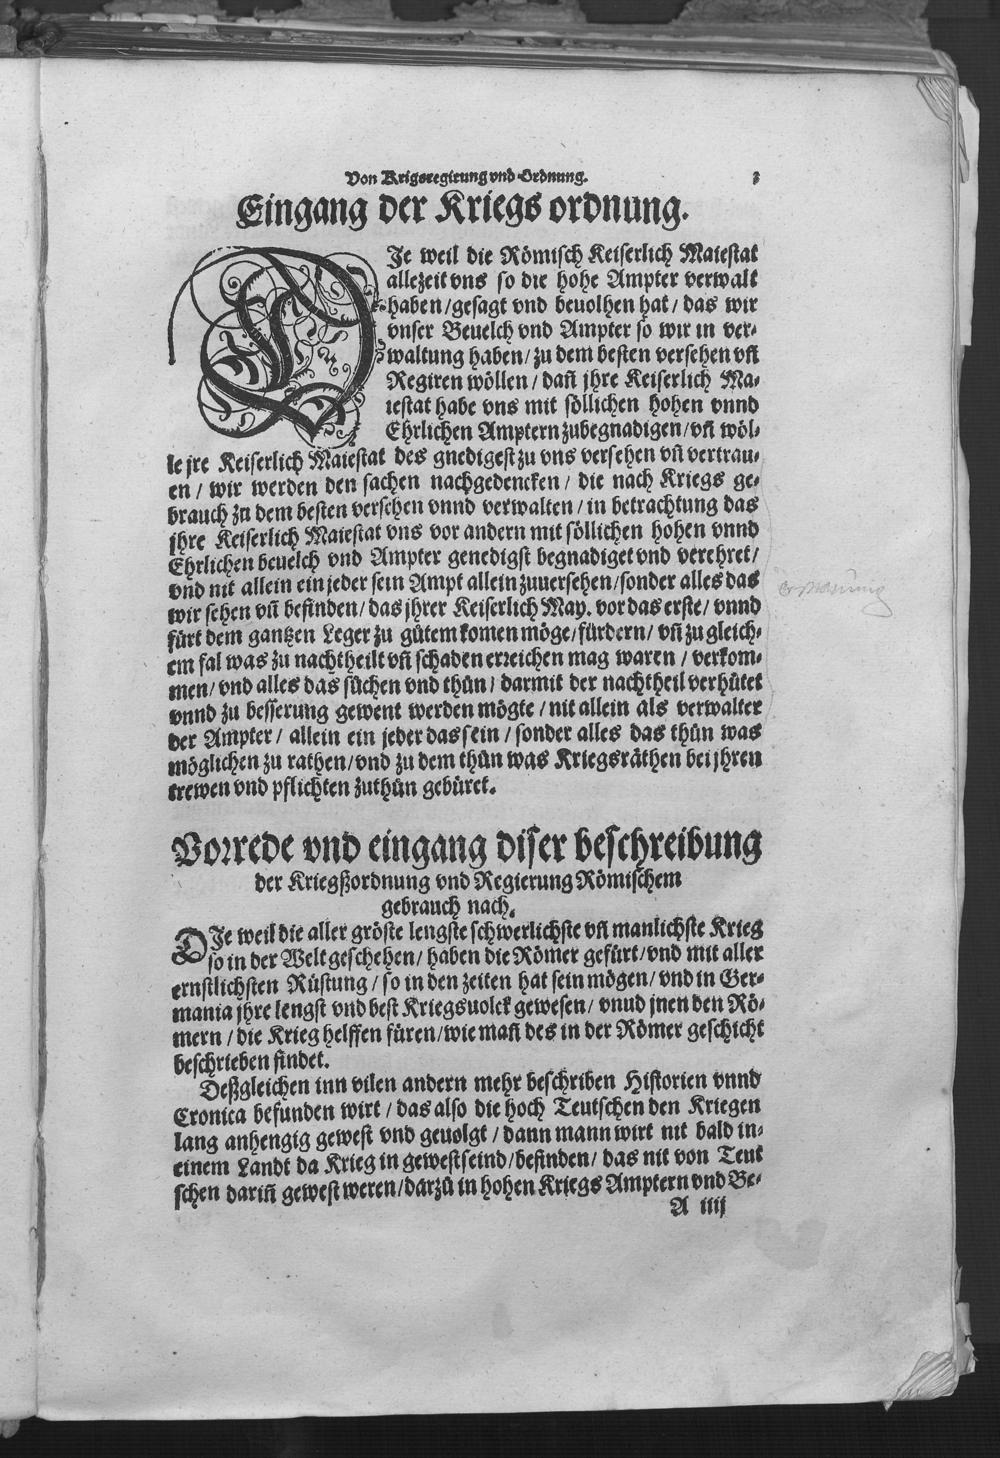 Von Krigsregirung vnd Ordnung.
Eingang der Kriegs ordnung.
DJe weil die Römisch Keiserlich Maiestat
allezeit vns so die hohe Ampter verwalt
haben / gesagt vnd beuolhen hat / das wir
vnser Beuelch vnd Ampter so wir in ver-
waltung haben / zu dem besten versehen vñ
Regiren wöllen / dañ jhre Keiserlich Ma-
iestat habe vns mit söllichen hohen vnnd
Ehrlichen Amptern zubegnadigen / vñ wöl-
le jre Keiserlich Maiestat des gnedigest zu vns versehen vñ vertrau-
en / wir werden den sachen nachgedencken / die nach Kriegs ge-
brauch zu dem besten versehen vnnd verwalten / in betrachtung das
jhre Keiserlich Maiestat vns vor andern mit söllichen hohen vnnd
Ehrlichen beuelch vnd Ampter genedigst begnadiget vnd verehret /
vnd nit allein ein jeder sein Ampt allein zuuersehen / sonder alles das
wir sehen vñ befinden / das jhrer Keiserlich May. vor das erste / vnnd
fürt dem gantzen Leger zu gůtem komen möge / fürdern / vñ zu gleich-
em fal was zu nachtheilt vñ schaden erreichen mag waren / verkom-
men / vnd alles das sůchen vnd thůn / darmit der nachtheil verhütet
vnnd zu besserung gewent werden mögte / nit allein als verwalter
der Ampter / allein ein jeder das sein / sonder alles das thůn was
möglichen zu rathen / vnd zu dem thůn was Kriegsräthen bei jhren
trewen vnd pflichten zuthůn gebüret.
Vorrede vnd eingang diser beschreibung
der Kriegßordnung vnd Regierung Römischem
gebrauch nach.
DJe weil die aller gröste lengste schwerlichste vñ manlichste Krieg
so in der Welt geschehen / haben die Römer gefürt / vnd mit aller
ernstlichsten Rüstung / so in den zeiten hat sein mögen / vnd in Ger-
mania jhre lengst vnd best Kriegsuolck gewesen / vnud jnen den Rö-
mern / die Krieg helffen füren / wie mañ des in der Römer geschicht
beschrieben findet.
Deßgleichen inn vilen andern mehr beschriben Historien vnnd
Cronica befunden wirt / das also die hoch Teutschen den Kriegen
lang anhengig gewest vnd geuolgt / dann mann wirt nit bald in-
einem Landt da Krieg in gewest seind / befinden / das nit von Teut
schen dariñ gewest weren / darzů in hohen Kriegs Amptern vnd Be-
A iiij